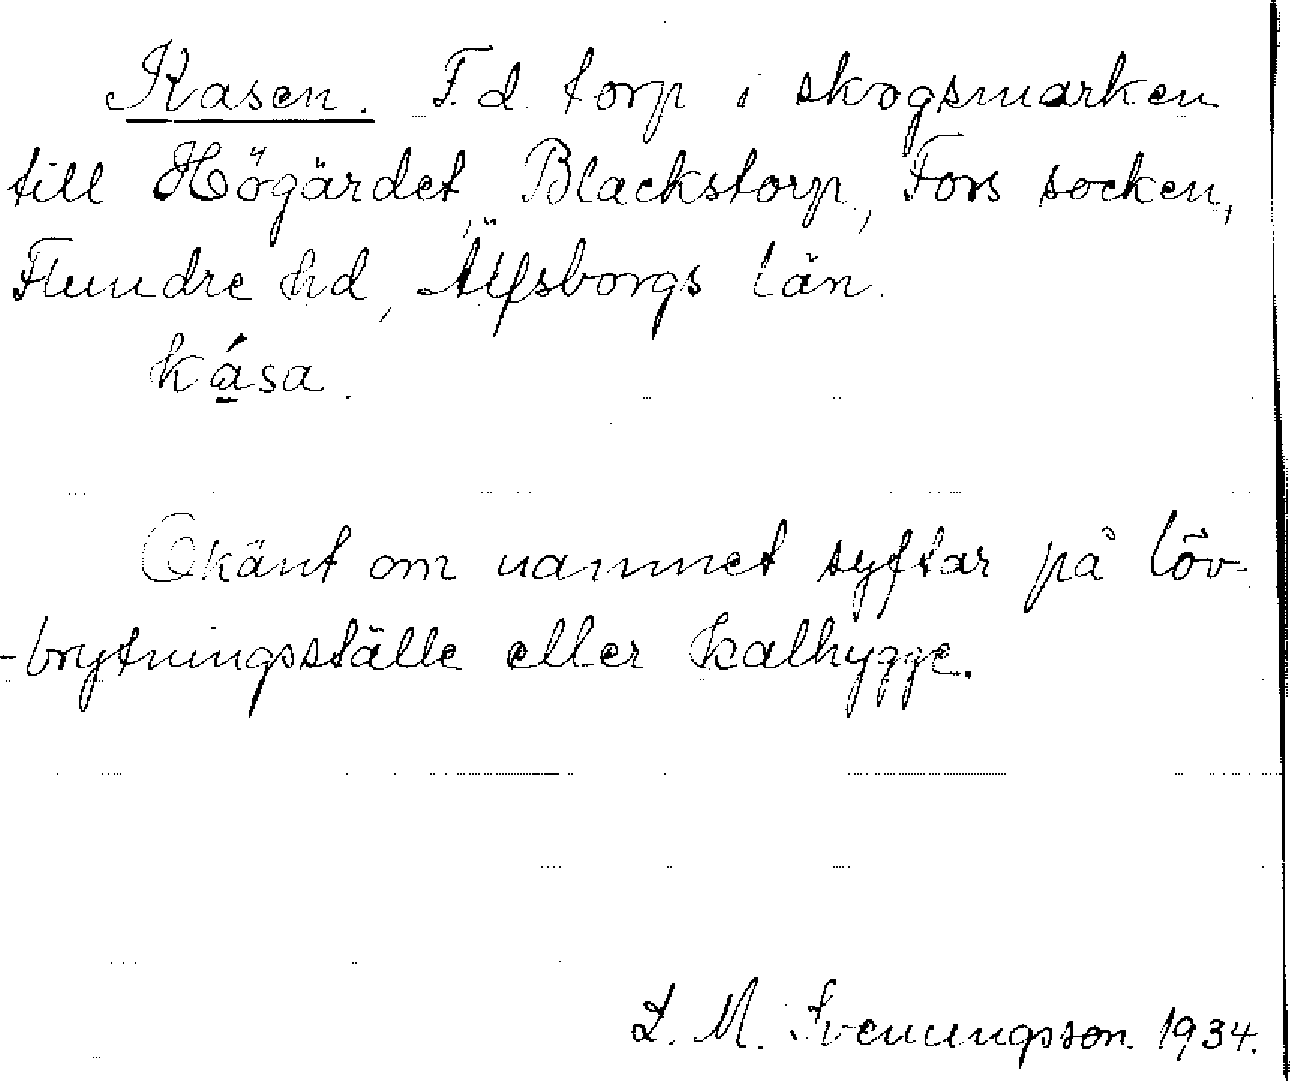 Kasen. F.d. torp i skogsmarken
till Högärdet, Blackstorp, Fors socken,
Flundre hd, Älfsborgs län.
ká̱sa.
Okänt om namnet syftar på löv-
-brytningsställe eller kalhygge.
L. M. Svenungsson 1934.